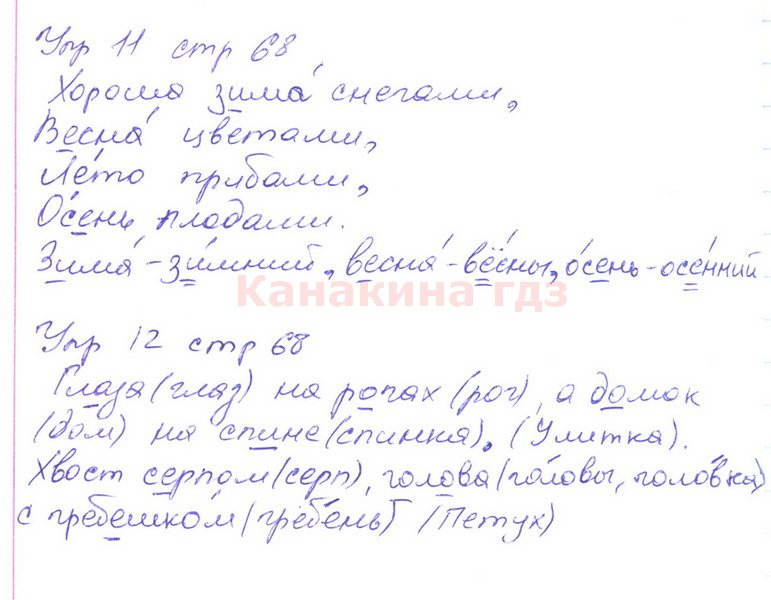 Упр 11 стр 68
Хороша зима́ снегами,
Весна́ цветами,
Ле́то грибами,
О́сень плодами.
Зима́ - зи́мний, весна́ - вёсны, о́сень - осе́нний
Канакина гдз
Упр 12 стр 68
Глаза (глаз) на рогах (рог), а домок
(дом) на спине (спинка). (Улитка).
Хвост серпом (серп), голова (го́ловы, голо́вка)
с гребешком (гребень) (Петух)